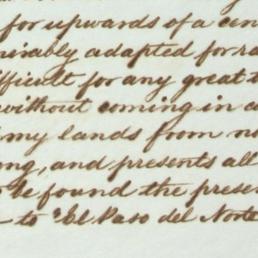 for upwards of a cen
mirably adapted for ra
fficult for any great
without coming in
my lands from no
ng, and presents all
be found the prese
to El Paso del Norte